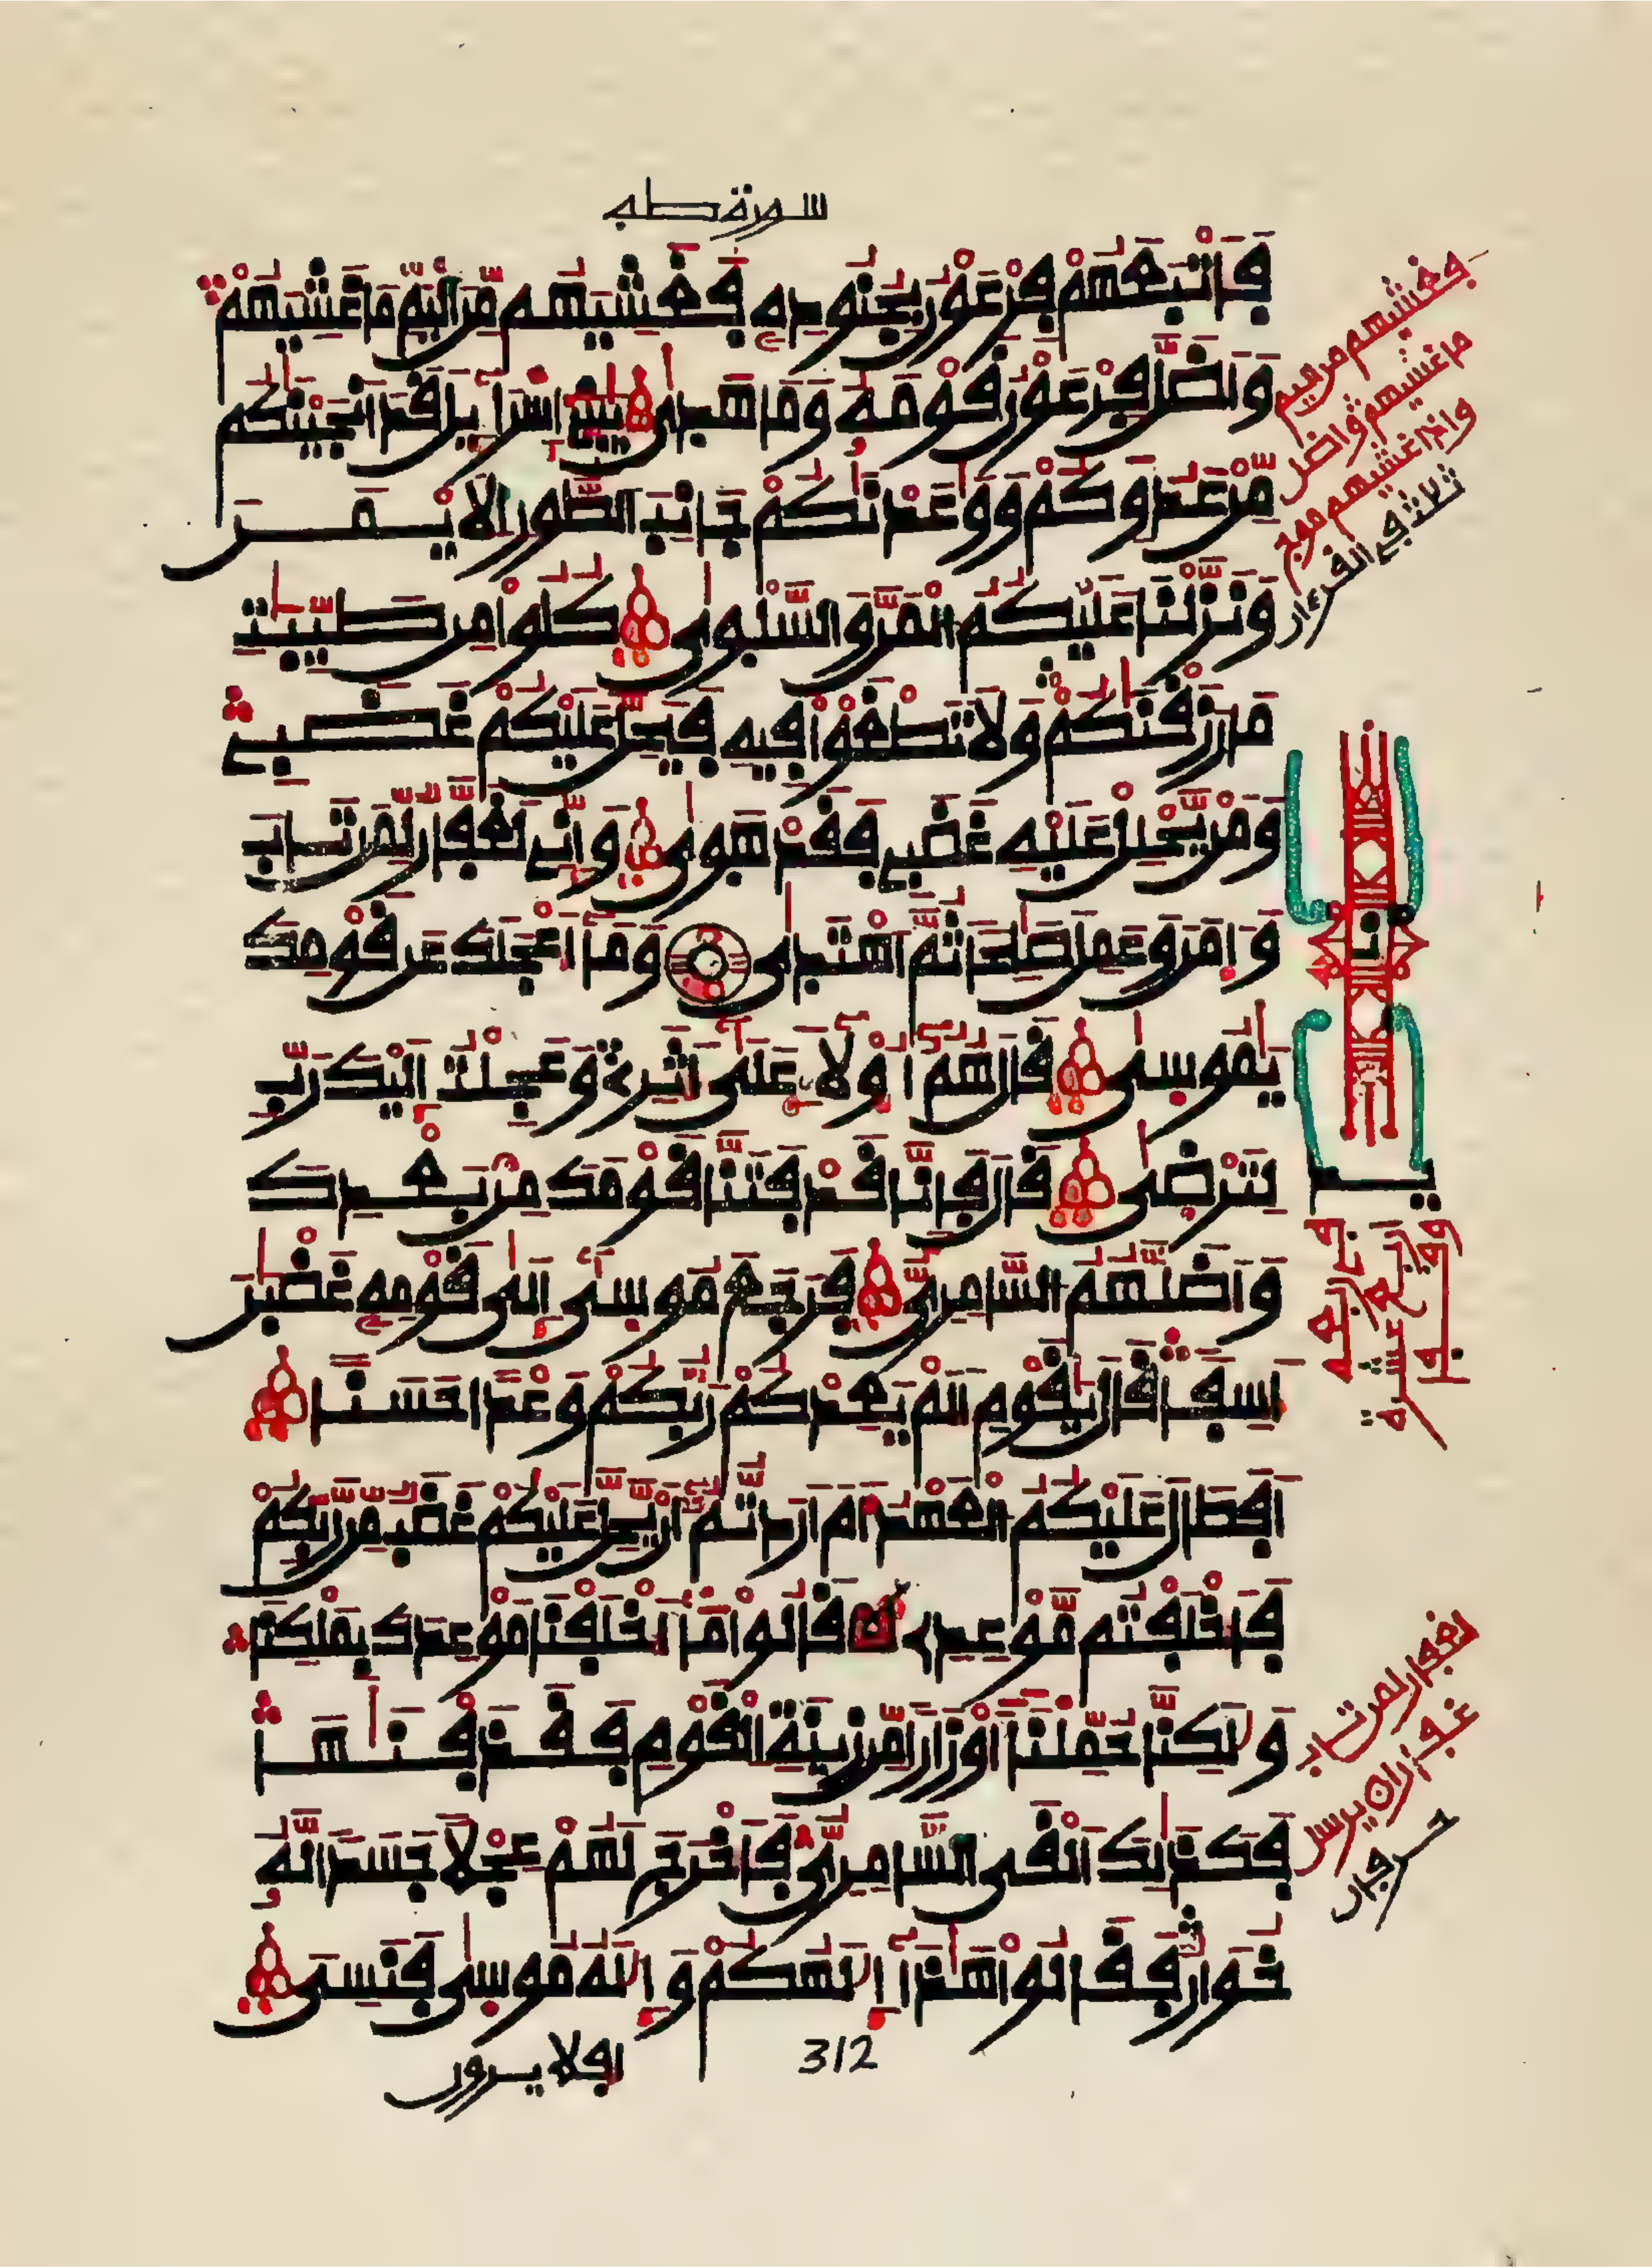 سورة طه
فَأَتْبَعَهُمْ فِرْعَوْنُ بِجُنُودِهِ فَغَشِيَهُم مِّنَ الْيَمِّ مَا غَشِيَهُمْ
وَأَضَلَّ فِرْعَوْنُ قَوْمَهُ وَمَا هَدٰى يٰبَنِى إِسْرَاءِيلَ قَدْ أَنجَيْنٰكُم
مِّنْ عَدُوِّكُمْ وَوٰعَدْنٰكُمْ جَانِبَ الطُّورِ الْأَيْمَنَ
وَنَزَّلْنَا عَلَيْكُمُ الْمَنَّ وَالسَّلْوٰى كُلُوا مِن طَيِّبٰتِ
مَا رَزَقْنٰكُمْ وَلَا تَطْغَوْا فِيهِ فَيَحِلَّ عَلَيْكُمْ غَضَبِى
وَمَن يَّحْلِلْ عَلَيْهِ غَضَبِى فَقَدْ هَوٰى وَإِنِّى لَغَفَّارٌ لِّمَن تَابَ
وَءَامَنَ وَعَمِلَ صٰلِحًا ثُمَّ اهْتَدٰى وَمَا أَعْجَلَكَ عَن قَوْمِكَ
يٰمُوسٰى قَالَ هُمُ أُولَاءِ عَلٰى أَثَرِى وَعَجِلْتُ إِلَيْكَ رَبِّ
لِتَرْضٰى قَالَ فَإِنَّا قَدْ فَتَنَّا قَوْمَكَ مِن بَعْدِكَ
وَأَضَلَّهُمُ السَّامِرِىُّ فَرَجَعَ مُوسٰى إِلٰى قَوْمِهِ غَضْبٰنَ
أَسِفًا قَالَ يٰقَوْمِ أَلَمْ يَعِدْكُمْ رَبُّكُمْ وَعْدًا حَسَنًا
أَفَطَالَ عَلَيْكُمُ الْعَهْدُ أَمْ أَرَدتُّمُ أَن يَّحِلَّ عَلَيْكُمْ غَضَبٌ مِّن رَّبِّكُمْ
فَأَخْلَفْتُم مَّوْعِدِى قَالُوا مَا أَخْلَفْنَا مَوْعِدَكَ بِمَلْكِنَا
وَلٰكِنَّا حُمِّلْنَا أَوْزَارًا مِّن زِينَةِ الْقَوْمِ فَقَذَفْنٰهَا
فَكَذٰلِكَ أَلْقَى السَّامِرِىُّ فَأَخْرَجَ لَهُمْ عِجْلًا جَسَدًا لَّهُ
خُوَارٌ فَقَالُوا هٰذَا إِلٰهُكُمْ وَإِلٰهُ مُوسٰى فَنَسِىَ
أفلا يرون
312
فغشيهم من اليم
ما غشيهم واضل
واذا غشيهم موج
ثلث في القرءان
لغفار لمن تاب
غفارا يرسل